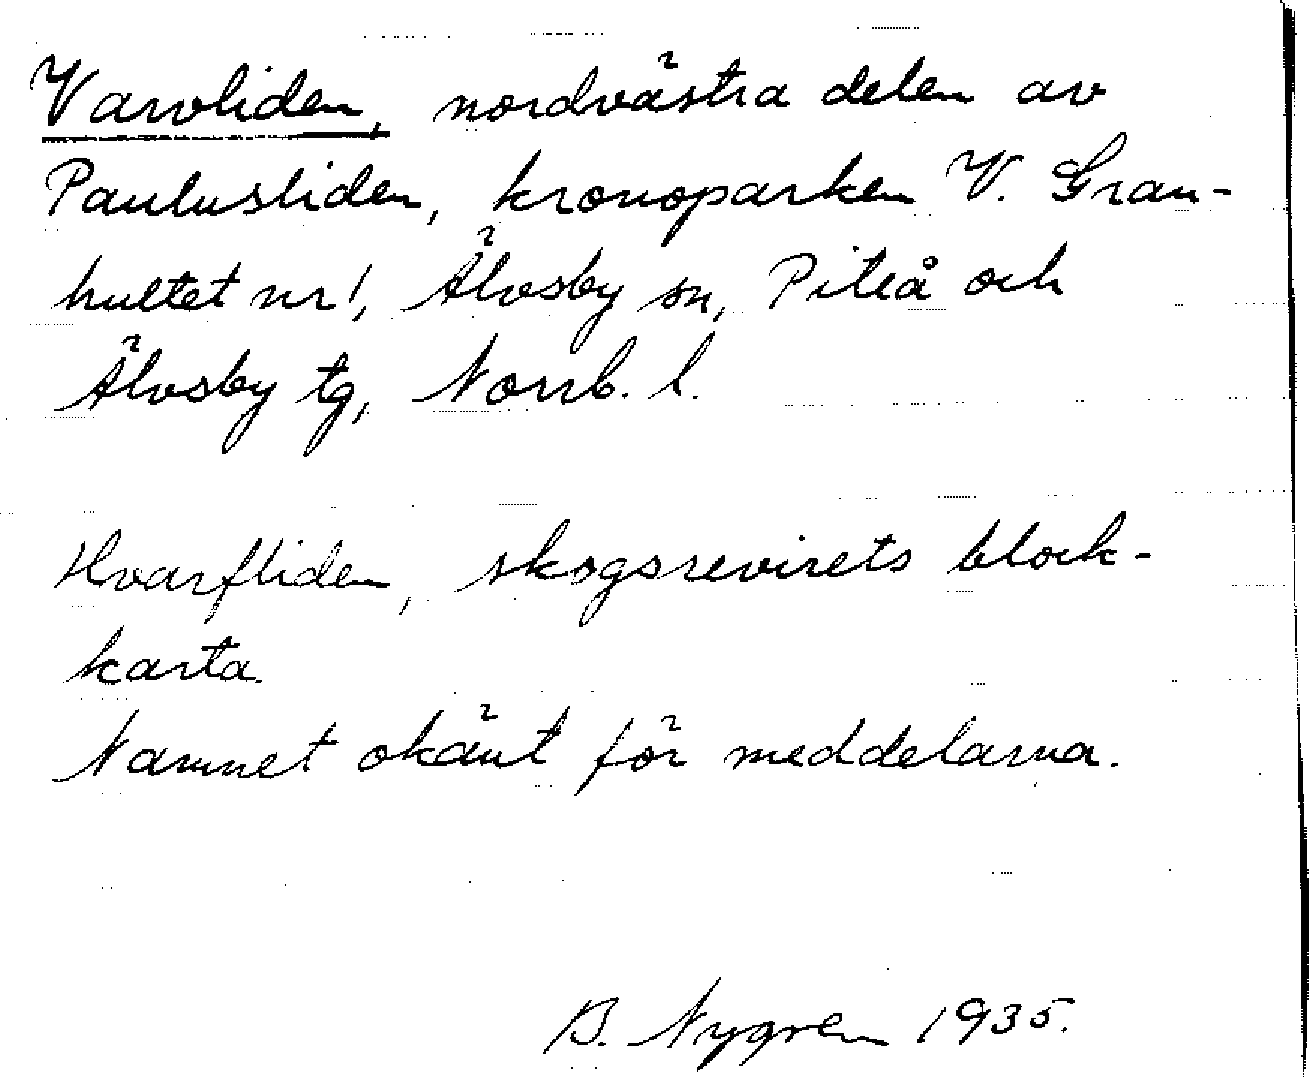 Varvliden, nordvästra delen av
Paulusliden, kronoparken V. Gran-
hultet nr 1, Älvsby sn, Piteå och
Älvsby tg, Norrb. l.
Hvarfliden, skogsrevirets block-
karta.
Namnet okänt för meddelarna.
B. Nygren 1935.